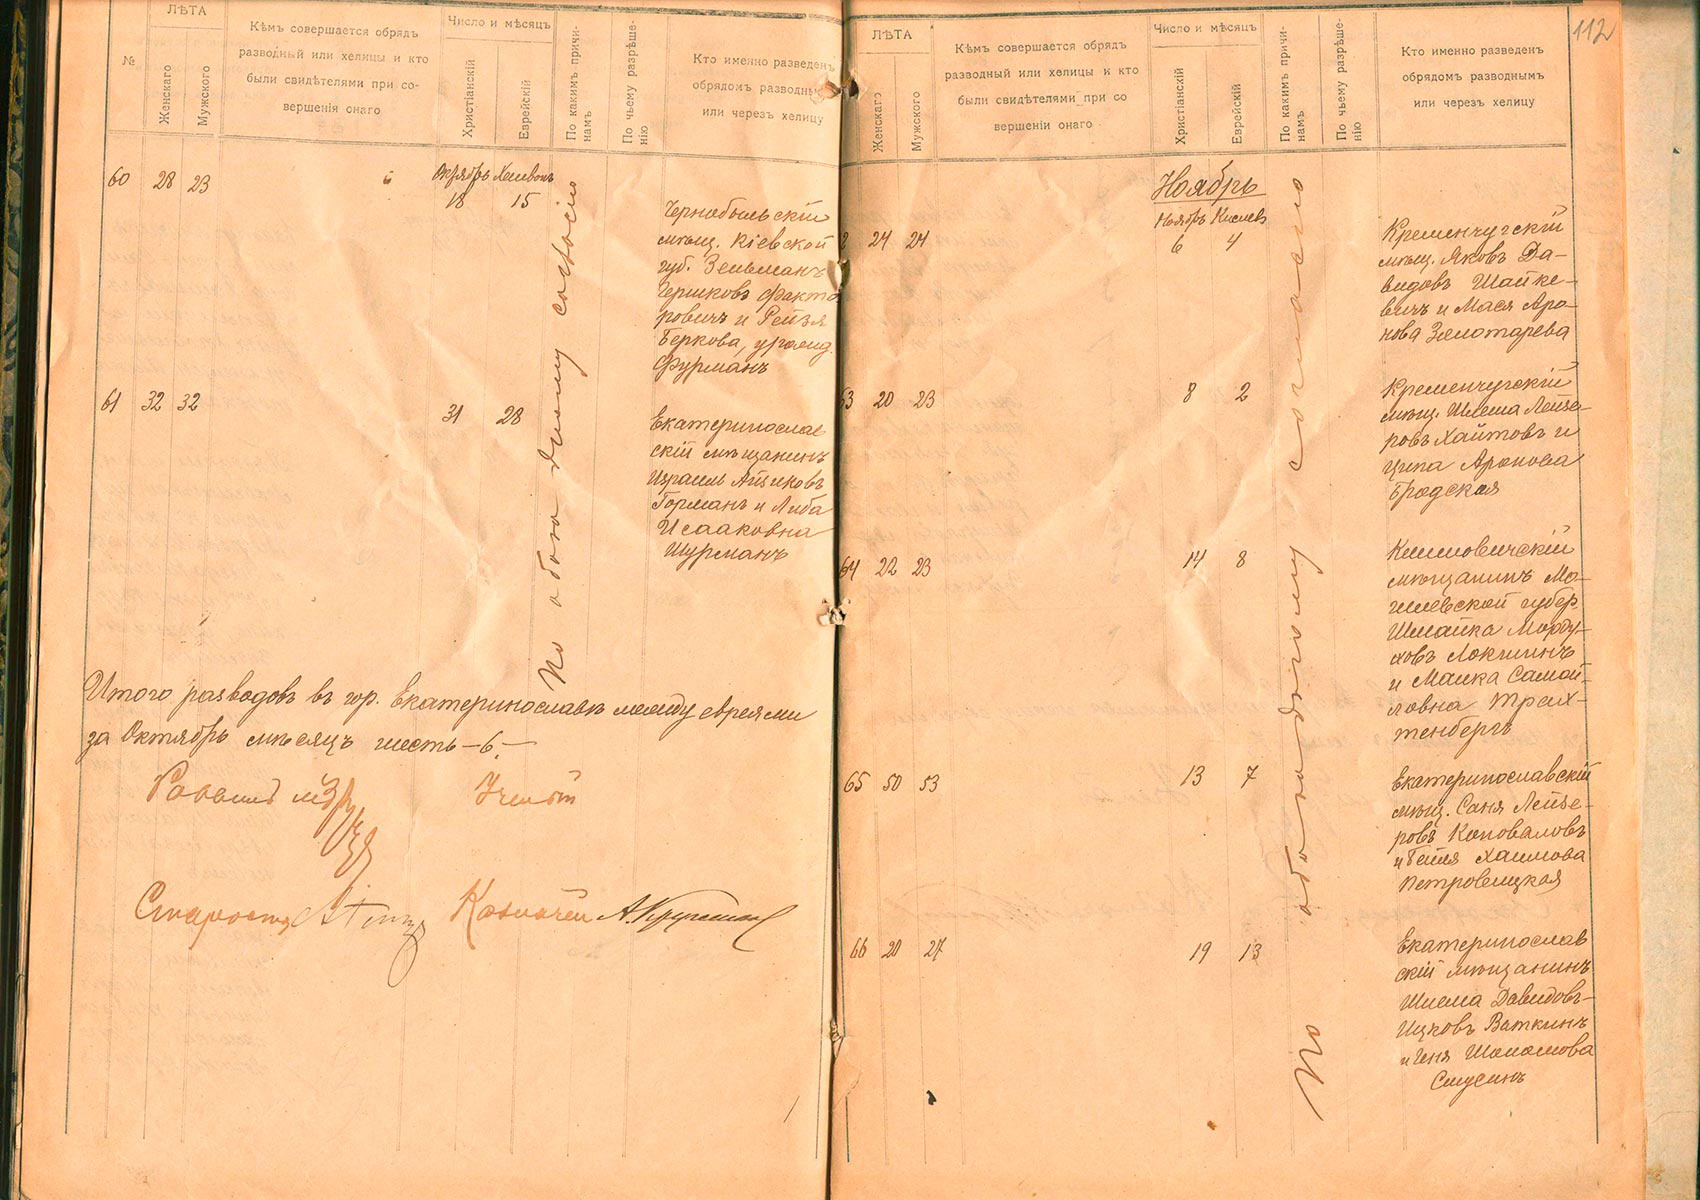 №
ЛѢТА
Женскаго
Мужского
Кѣмъ совершается обрядъ
разводный или хелицы и кто
были свидѣтелями при со-
вершенiи онаго
Число и мѣсяцъ
Христіанскій
Еврейскій
По какимъ причи-
намъ
По чьему разрѣше-
нію
Кто именно разведенъ
обрядомъ разводнымъ
или черезъ хелицу
60 28 23
Октябрь Хешвонъ
18 15
Чернобыльскій
мѣщ. Кіевской
губ. Зельманъ
Гершковъ Факто
ровичъ и Рейзя
Беркова, урожд.
Фурманъ
61 32 32
31 28
Екатеринослав
скій мѣщанинъ
Израиль Айзиковъ
Горманъ и Либа
Исааковна
Шурманъ
По обоюдному согласію
Итого разводовъ въ гор. Екатеринославѣ между евреями
за Октябрь мѣсяцъ шесть —6.—
Раввинъ
Ученый
Староста
Казначей
112
ЛѢТА
Женскаго
Мужского
Кѣмъ совершается обрядъ
разводный или хелицы и кто
были свидѣтелями при со
вершеніи онаго
Число и мѣсяцъ
Христіанскій
Еврейскій
По какимъ причи-
намъ
По чьему разрѣше-
нію
Кто именно разведенъ
обрядомъ разводнымъ
или черезъ хелицу
Ноябрь
Ноябрь Кислев
2 24 24
6 4
Кременчугскій
мѣщ. Яковъ Да-
видовъ Шайке-
вичъ и Мася Аро-
нова Золотарева
63 20 23
8 2
Кременчугскій
мѣщ. Шлема Лейзе-
ровъ Хаймовъ и
Ципа Аронова
Бродская
64 22 23
14 8
Климовичскій
мѣщанинъ Мо-
гилевской губер.
Шмайка Морду-
ховъ Локшинъ
и Малка Самой-
ловна Трах-
тенбергъ
65 50 53
13 7
Екатеринославскій
мѣщ. Саня Лейзе-
ровъ Коноваловъ
и Бейля Хаимова
Петровицкая
66 20 27
19 13
Екатеринослав
скій мѣщанинъ
Шлема Давидовъ-
ИцковъВаткинъ
и Геня Шоломова
По обоюдному согласію